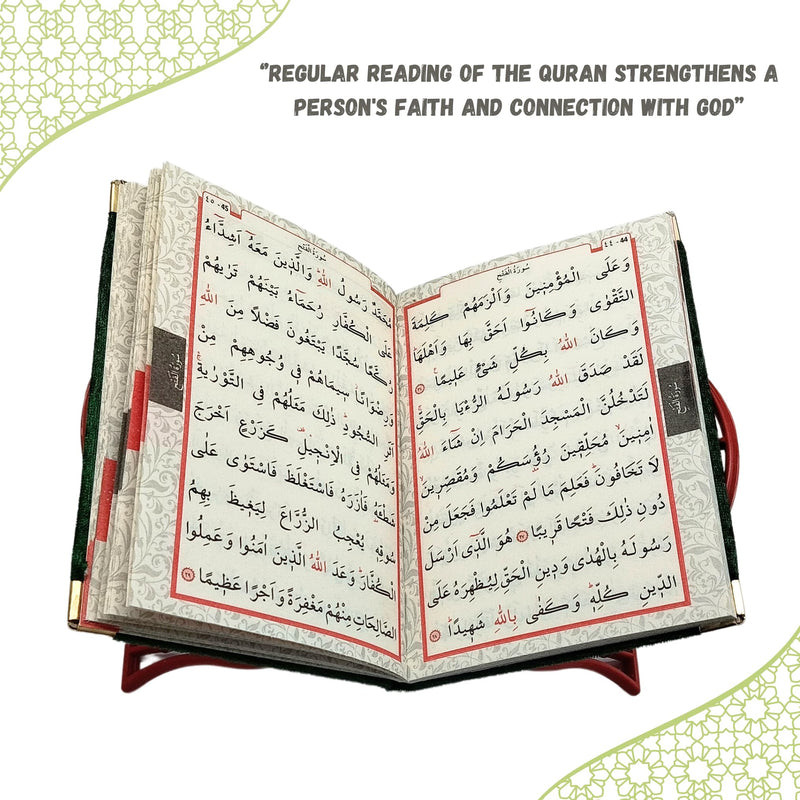 “REGULAR READING OF THE QURAN STRENGTHENS A
PERSON'S FAITH AND CONNECTION WITH GOD”
٤٤ - 44
سُورَةُ الْفَتْحِ
وَعَلَى الْمُؤْمِنٖينَ وَاَلْزَمَهُمْ كَلِمَةَ
التَّقْوٰى وَكَانُٓوا اَحَقَّ بِهَا وَاَهْلَهَا
وَكَانَ اللّٰهُ بِكُلِّ شَيْءٍ عَلٖيمًا ﴿٢٦﴾
لَقَدْ صَدَقَ اللّٰهُ رَسُولَهُ الرُّءْيَا بِالْحَقِّ
لَتَدْخُلُنَّ الْمَسْجِدَ الْحَرَامَ اِنْ شَٓاءَ اللّٰهُ
اٰمِنٖينَ مُحَلِّقٖينَ رُؤُسَكُمْ وَمُقَصِّرٖينَ
لَا تَخَافُونَ فَعَلِمَ مَا لَمْ تَعْلَمُوا فَجَعَلَ مِنْ
دُونِ ذٰلِكَ فَتْحًا قَرٖيبًا ﴿٢٧﴾ هُوَ الَّذٖٓي اَرْسَلَ
رَسُولَهُ بِالْهُدٰى وَدٖينِ الْحَقِّ لِيُظْهِرَهُ عَلَى
الدّٖينِ كُلِّهٖ وَكَفٰى بِاللّٰهِ شَهٖيدًا ﴿٢٨﴾
سُورَةُ الْفَتْحِ
٤٥ - 45
سُورَةُ الْفَتْحِ
مُحَمَّدٌ رَسُولُ اللّٰهِ وَالَّذٖينَ مَعَهُٓ اَشِدَّٓاءُ
عَلَى الْكُفَّارِ رُحَمَٓاءُ بَيْنَهُمْ تَرٰيهُمْ
رُكَّعًا سُجَّدًا يَبْتَغُونَ فَضْلًا مِنَ اللّٰهِ
وَرِضْوَانًا سٖيمَاهُمْ فٖي وُجُوهِهِمْ مِنْ
اَثَرِ السُّجُودِ ذٰلِكَ مَثَلُهُمْ فِي التَّوْرٰيةِ
وَمَثَلُهُمْ فِي الْاِنْجٖيلِ كَزَرْعٍ اَخْرَجَ
شَطْـَٔهُ فَاٰزَرَهُ فَاسْتَغْلَظَ فَاسْتَوٰى عَلٰى
سُوقِهٖ يُعْجِبُ الزُّرَّاعَ لِيَغٖيظَ بِهِمُ
الْكُفَّارَ وَعَدَ اللّٰهُ الَّذٖينَ اٰمَنُوا وَعَمِلُوا
الصَّالِحَاتِ مِنْهُمْ مَغْفِرَةً وَاَجْرًا عَظٖيمًا ﴿٢٩﴾
سُورَةُ الْفَتْحِ